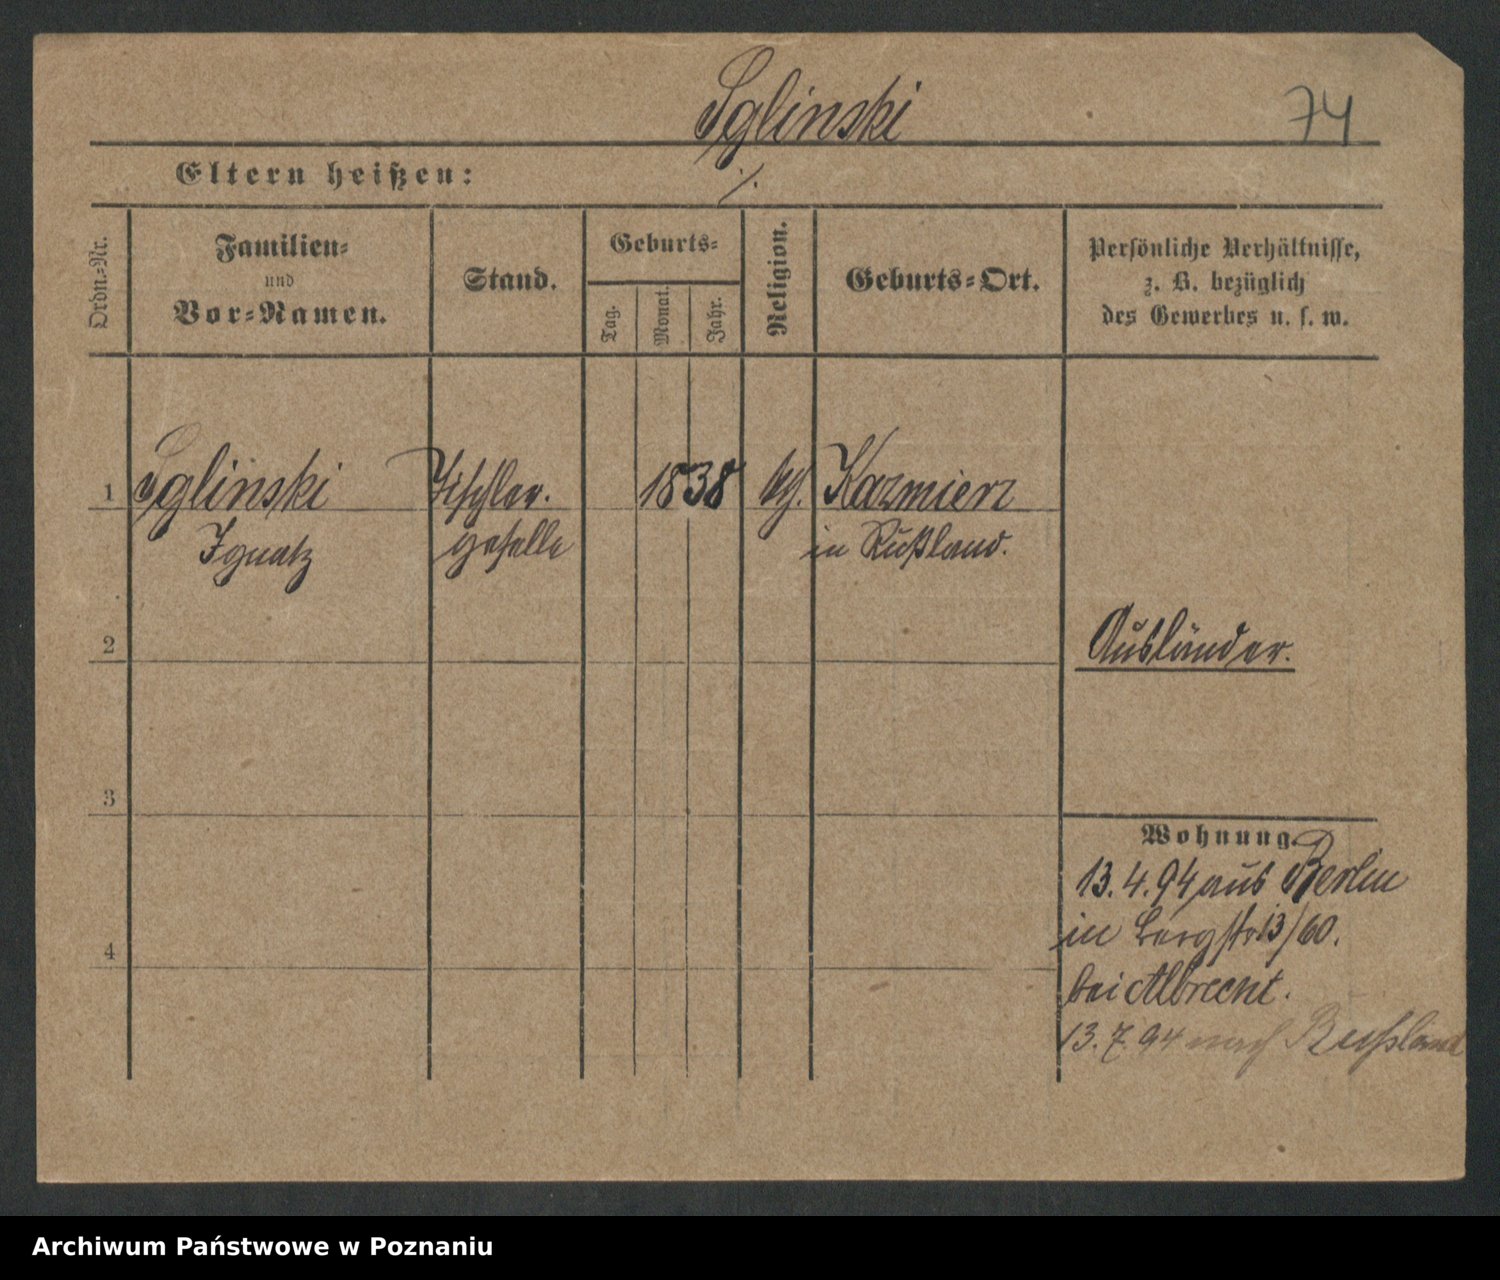 Iglinski
74
Eltern heißen:
./.
Ordn.-Nr.
Familien-
und
Vor-Namen.
Stand.
Geburts-
Tag.
Monat.
Jahr.
Religion.
Geburts-Ort.
Persönliche Verhältnisse,
z. B. bezüglich
des Gewerbes u. s. w.
1 Iglinski Tischler- 1838 kth. Kazmierz
Ignatz geselle in Rußland.
2
Ausländer.
3
Wohnung.
13.4.94 aus Berlin
in Bergstr 13/60.
4
bei Albrecht.
13.7.94 nach Russland
Archiwum Państwowe w Poznaniu